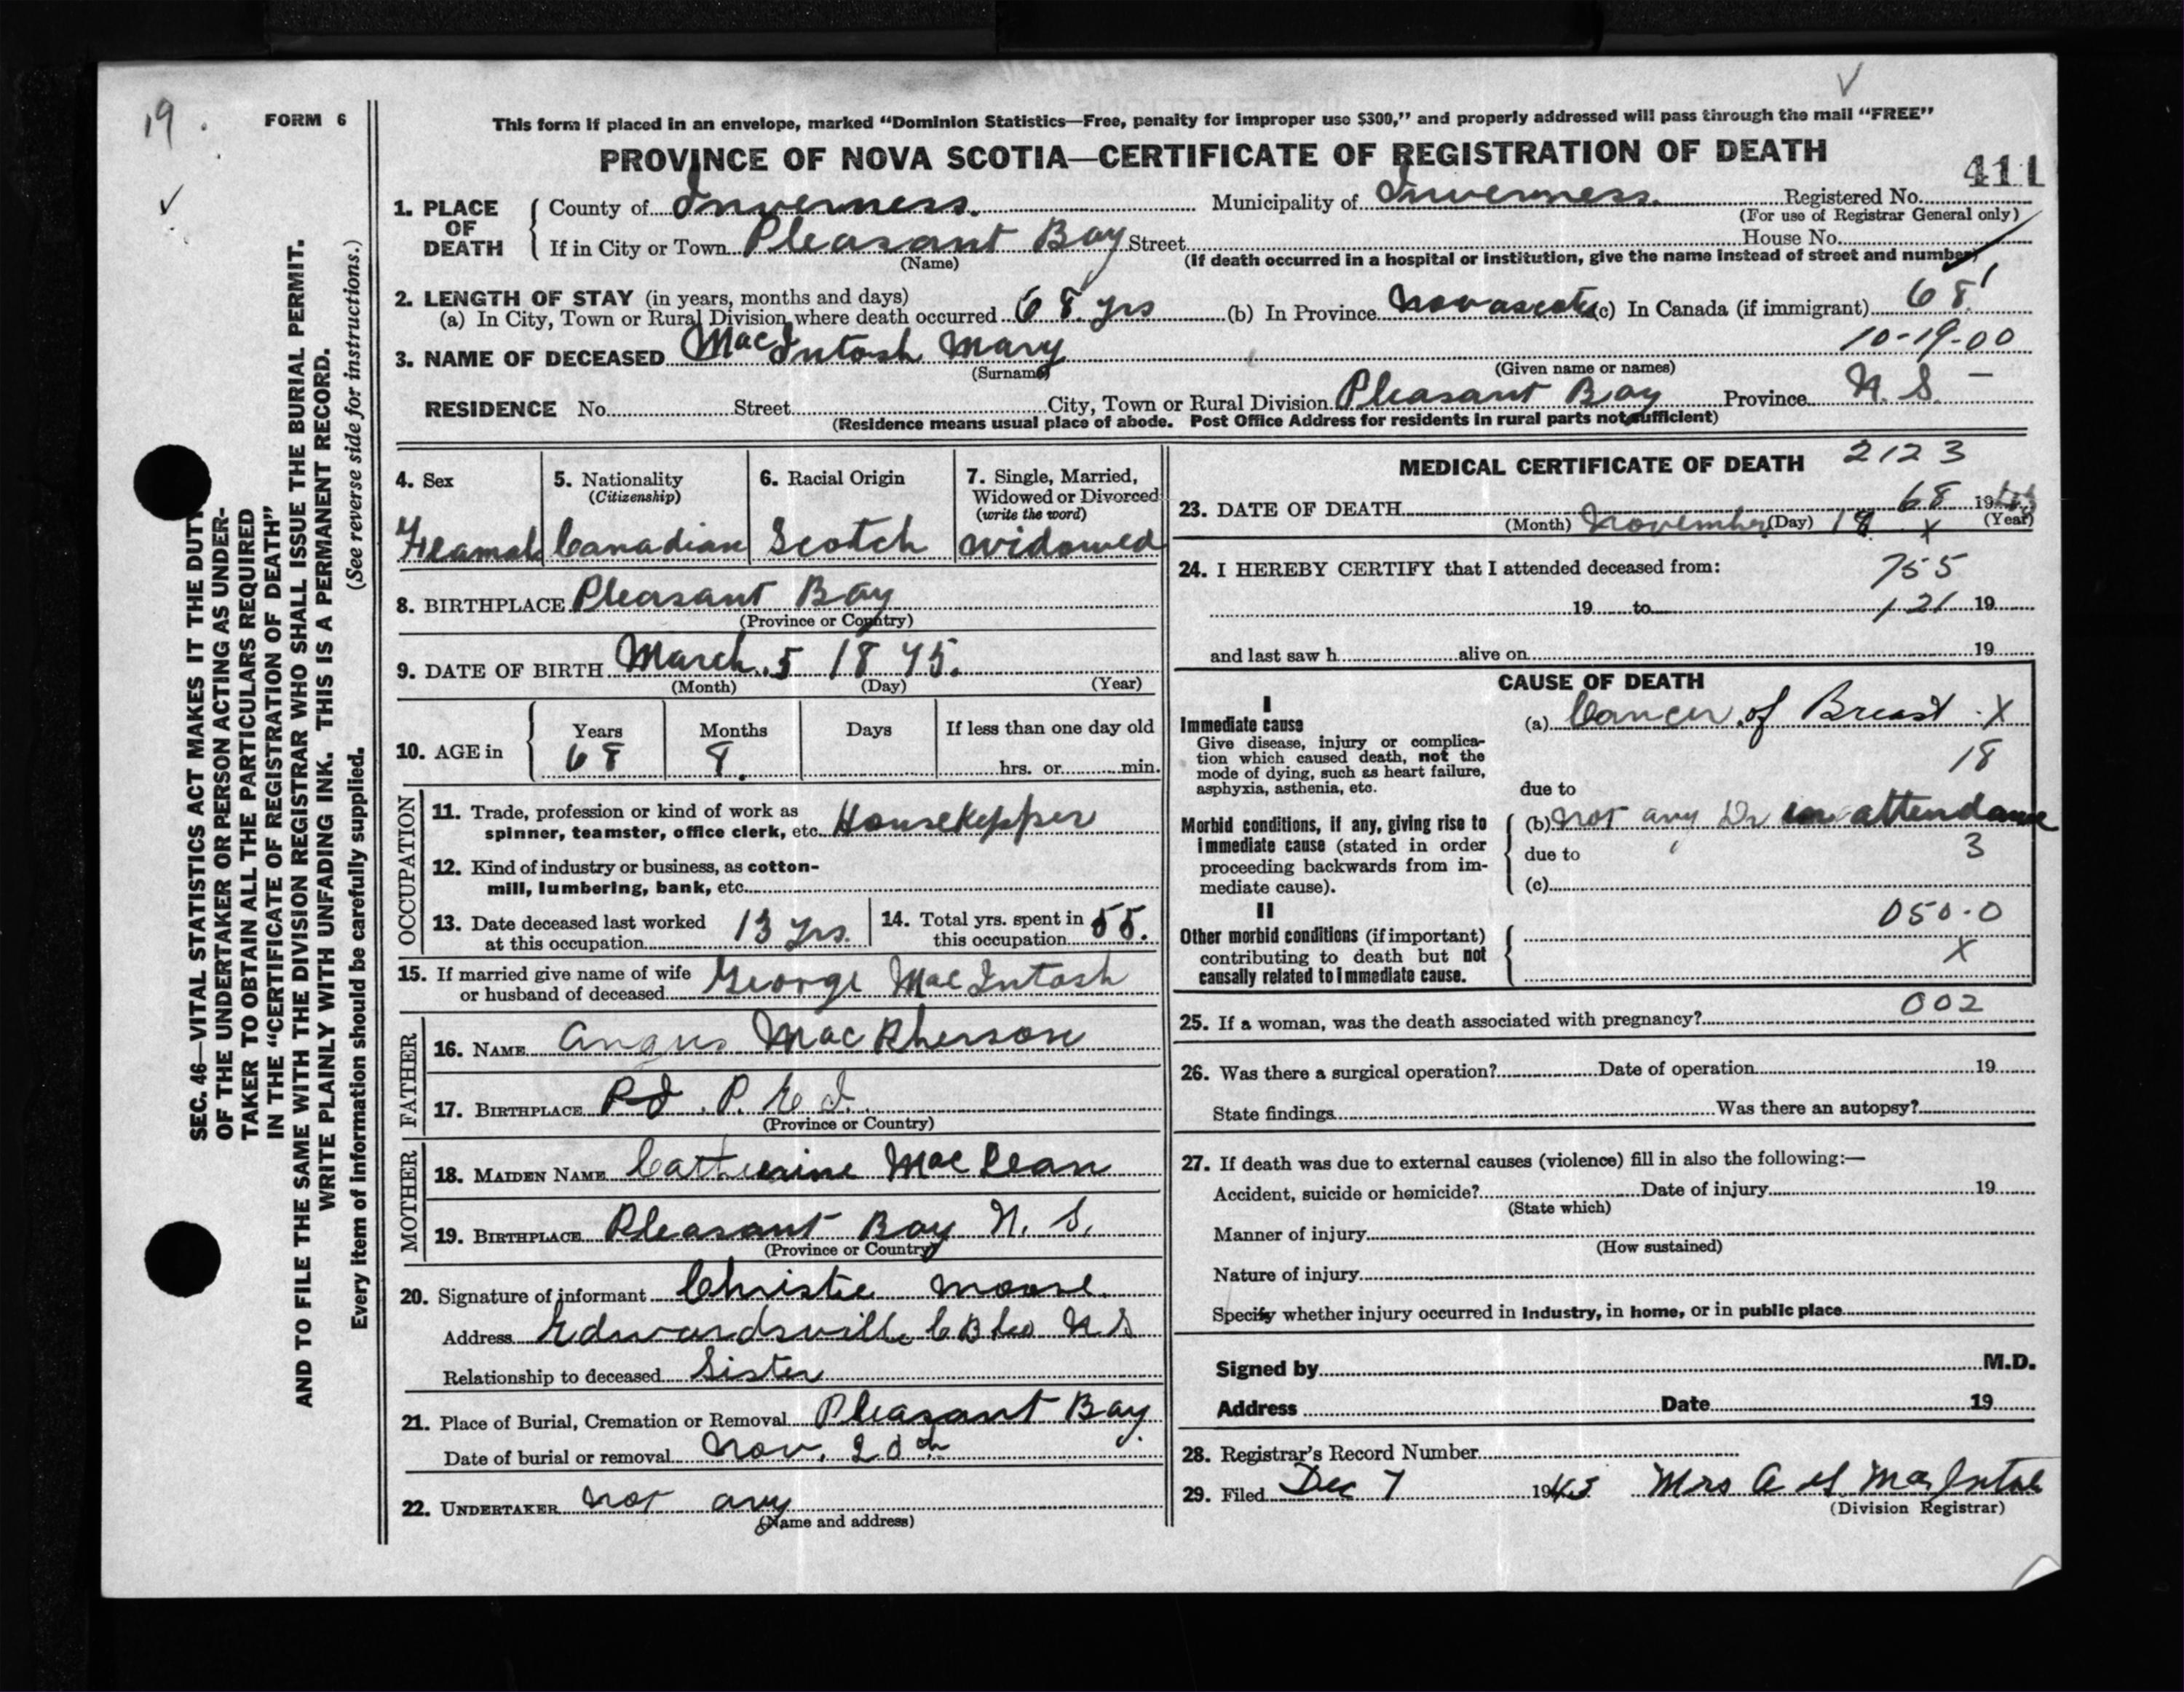 19.
FORM 6
This form if placed in an envelope, marked “Dominion Statistics—Free, penalty for improper use $300,” and properly addressed will pass through the mail “FREE”
PROVINCE OF NOVA SCOTIA—CERTIFICATE OF REGISTRATION OF DEATH
411
1. PLACE OF DEATH { County of Inverness. Municipality of Inverness. Registered No.
(For use of Registrar General only)
If in City or Town Pleasant Bay Street House No.
(Name) (If death occurred in a hospital or institution, give the name instead of street and number)
2. LENGTH OF STAY (in years, months and days)
(a) In City, Town or Rural Division where death occurred 68 yrs (b) In Province Novascotia (c) In Canada (if immigrant) 68
10-19-00
3. NAME OF DECEASED MacIntosh Mary
(Surname) (Given name or names)
RESIDENCE No. Street City, Town or Rural Division Pleasant Bay Province N. S. —
(Residence means usual place of abode. Post Office Address for residents in rural parts not sufficient)
SEC. 46—VITAL STATISTICS ACT MAKES IT THE DUTY
OF THE UNDERTAKER OR PERSON ACTING AS UNDER-
TAKER TO OBTAIN ALL THE PARTICULARS REQUIRED
IN THE “CERTIFICATE OF REGISTRATION OF DEATH”
AND TO FILE THE SAME WITH THE DIVISION REGISTRAR WHO SHALL ISSUE THE BURIAL PERMIT.
WRITE PLAINLY WITH UNFADING INK. THIS IS A PERMANENT RECORD.
Every item of information should be carefully supplied. (See reverse side for instructions.)
4. Sex 5. Nationality 6. Racial Origin 7. Single, Married,
(Citizenship) Widowed or Divorced
(write the word)
Feamal Canadian Scotch widowed
8. BIRTHPLACE Pleasant Bay
(Province or Country)
9. DATE OF BIRTH March 5 1875.
(Month) (Day) (Year)
10. AGE in { Years Months Days If less than one day old
68 8. hrs. or min.
OCCUPATION
11. Trade, profession or kind of work as
spinner, teamster, office clerk, etc. Housekepper
12. Kind of industry or business, as cotton-
mill, lumbering, bank, etc.
13. Date deceased last worked
at this occupation 13 yrs. 14. Total yrs. spent in
this occupation 55.
15. If married give name of wife
or husband of deceased George MacIntosh
FATHER
16. NAME Angus MacPherson
17. BIRTHPLACE P. E I.
(Province or Country)
MOTHER
18. MAIDEN NAME Catherine MacLean
19. BIRTHPLACE Pleasant Bay N. S.
(Province or Country)
20. Signature of informant Christie Moore.
Address Edwardsville C B Co N S
Relationship to deceased Sister
21. Place of Burial, Cremation or Removal Pleasant Bay.
Date of burial or removal Nov. 20th
22. UNDERTAKER not any
(Name and address)
MEDICAL CERTIFICATE OF DEATH 2123
23. DATE OF DEATH 68 19
(Month) November (Day) 18 X (Year)
24. I HEREBY CERTIFY that I attended deceased from: 755
19 to 121 19
and last saw h alive on 19
CAUSE OF DEATH
I
Immediate cause (a) Cancer of Breast X
Give disease, injury or complica-
tion which caused death, not the 18
mode of dying, such as heart failure,
asphyxia, asthenia, etc. due to
Morbid conditions, if any, giving rise to (b) not any Dr in attendance
immediate cause (stated in order due to 3
proceeding backwards from im-
mediate cause). (c)
II
050-0
Other morbid conditions (if important)
contributing to death but not X
causally related to immediate cause.
002
25. If a woman, was the death associated with pregnancy?
26. Was there a surgical operation? Date of operation 19
State findings Was there an autopsy?
27. If death was due to external causes (violence) fill in also the following:—
Accident, suicide or homicide? Date of injury 19
(State which)
Manner of injury
(How sustained)
Nature of injury
Specify whether injury occurred in Industry, in home, or in public place
Signed by M.D.
Address Date 19
28. Registrar’s Record Number
29. Filed Dec 7 1943 Mrs A MacIntosh
(Division Registrar)